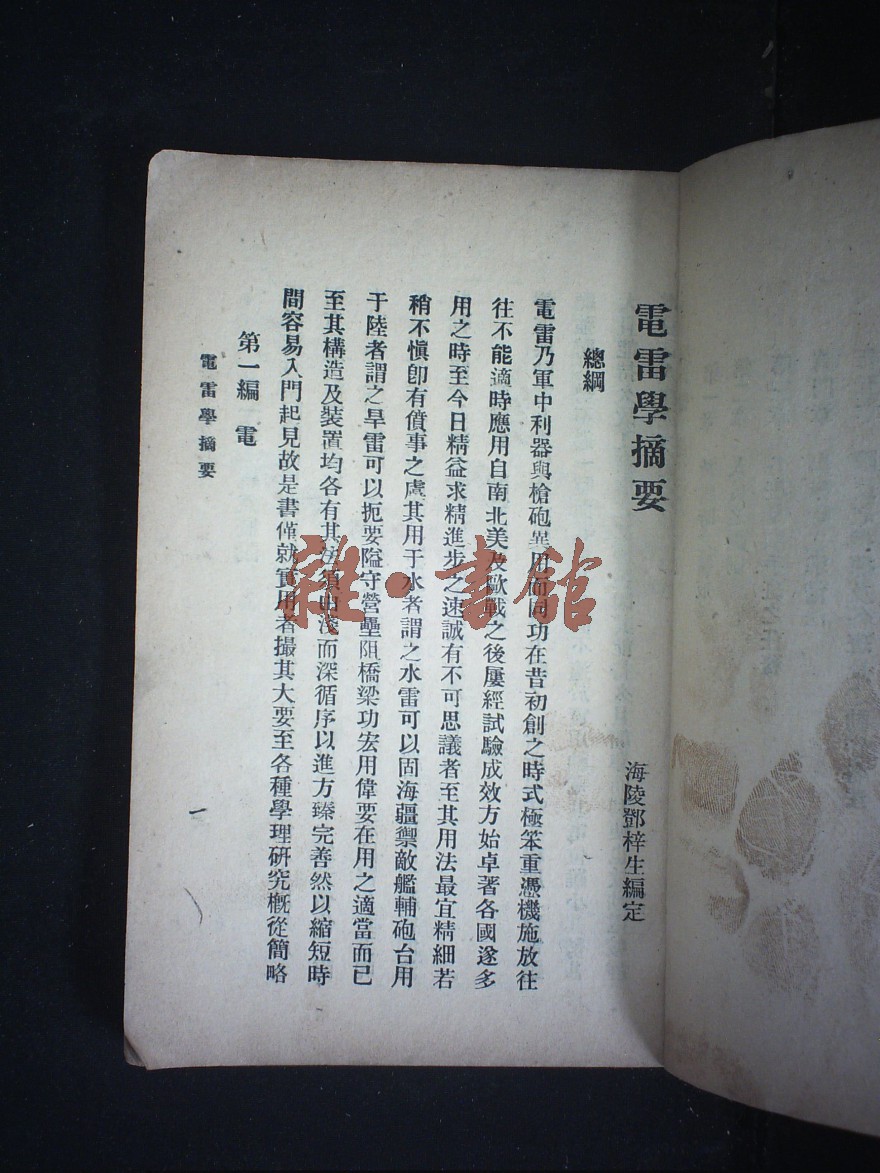 電雷學摘要
海陵鄧梓生編定
總綱
電雷乃軍中利器與槍砲異用而同功在昔初創之時式極笨重憑機施放往
往不能適時應用自南北美及歐戰之後屢經試驗成效方始卓著各國遂多
用之時至今日精益求精進步之速誠有不可思議者至其用法最宜精細若
稍不愼卽有僨事之虞其用于水者謂之水雷可以固海疆禦敵艦輔砲台用
于陸者謂之旱雷可以扼要隘守營壘阻橋梁功宏用偉要在用之適當而已
至其構造及裝置均各有其須由淺而深循序以進方臻完善然以縮短時
間容易入門起見故是書僅就實用者撮其大要至各種學理硏究槪從簡略
第一編 電
電雷學摘要
一
雜·書館